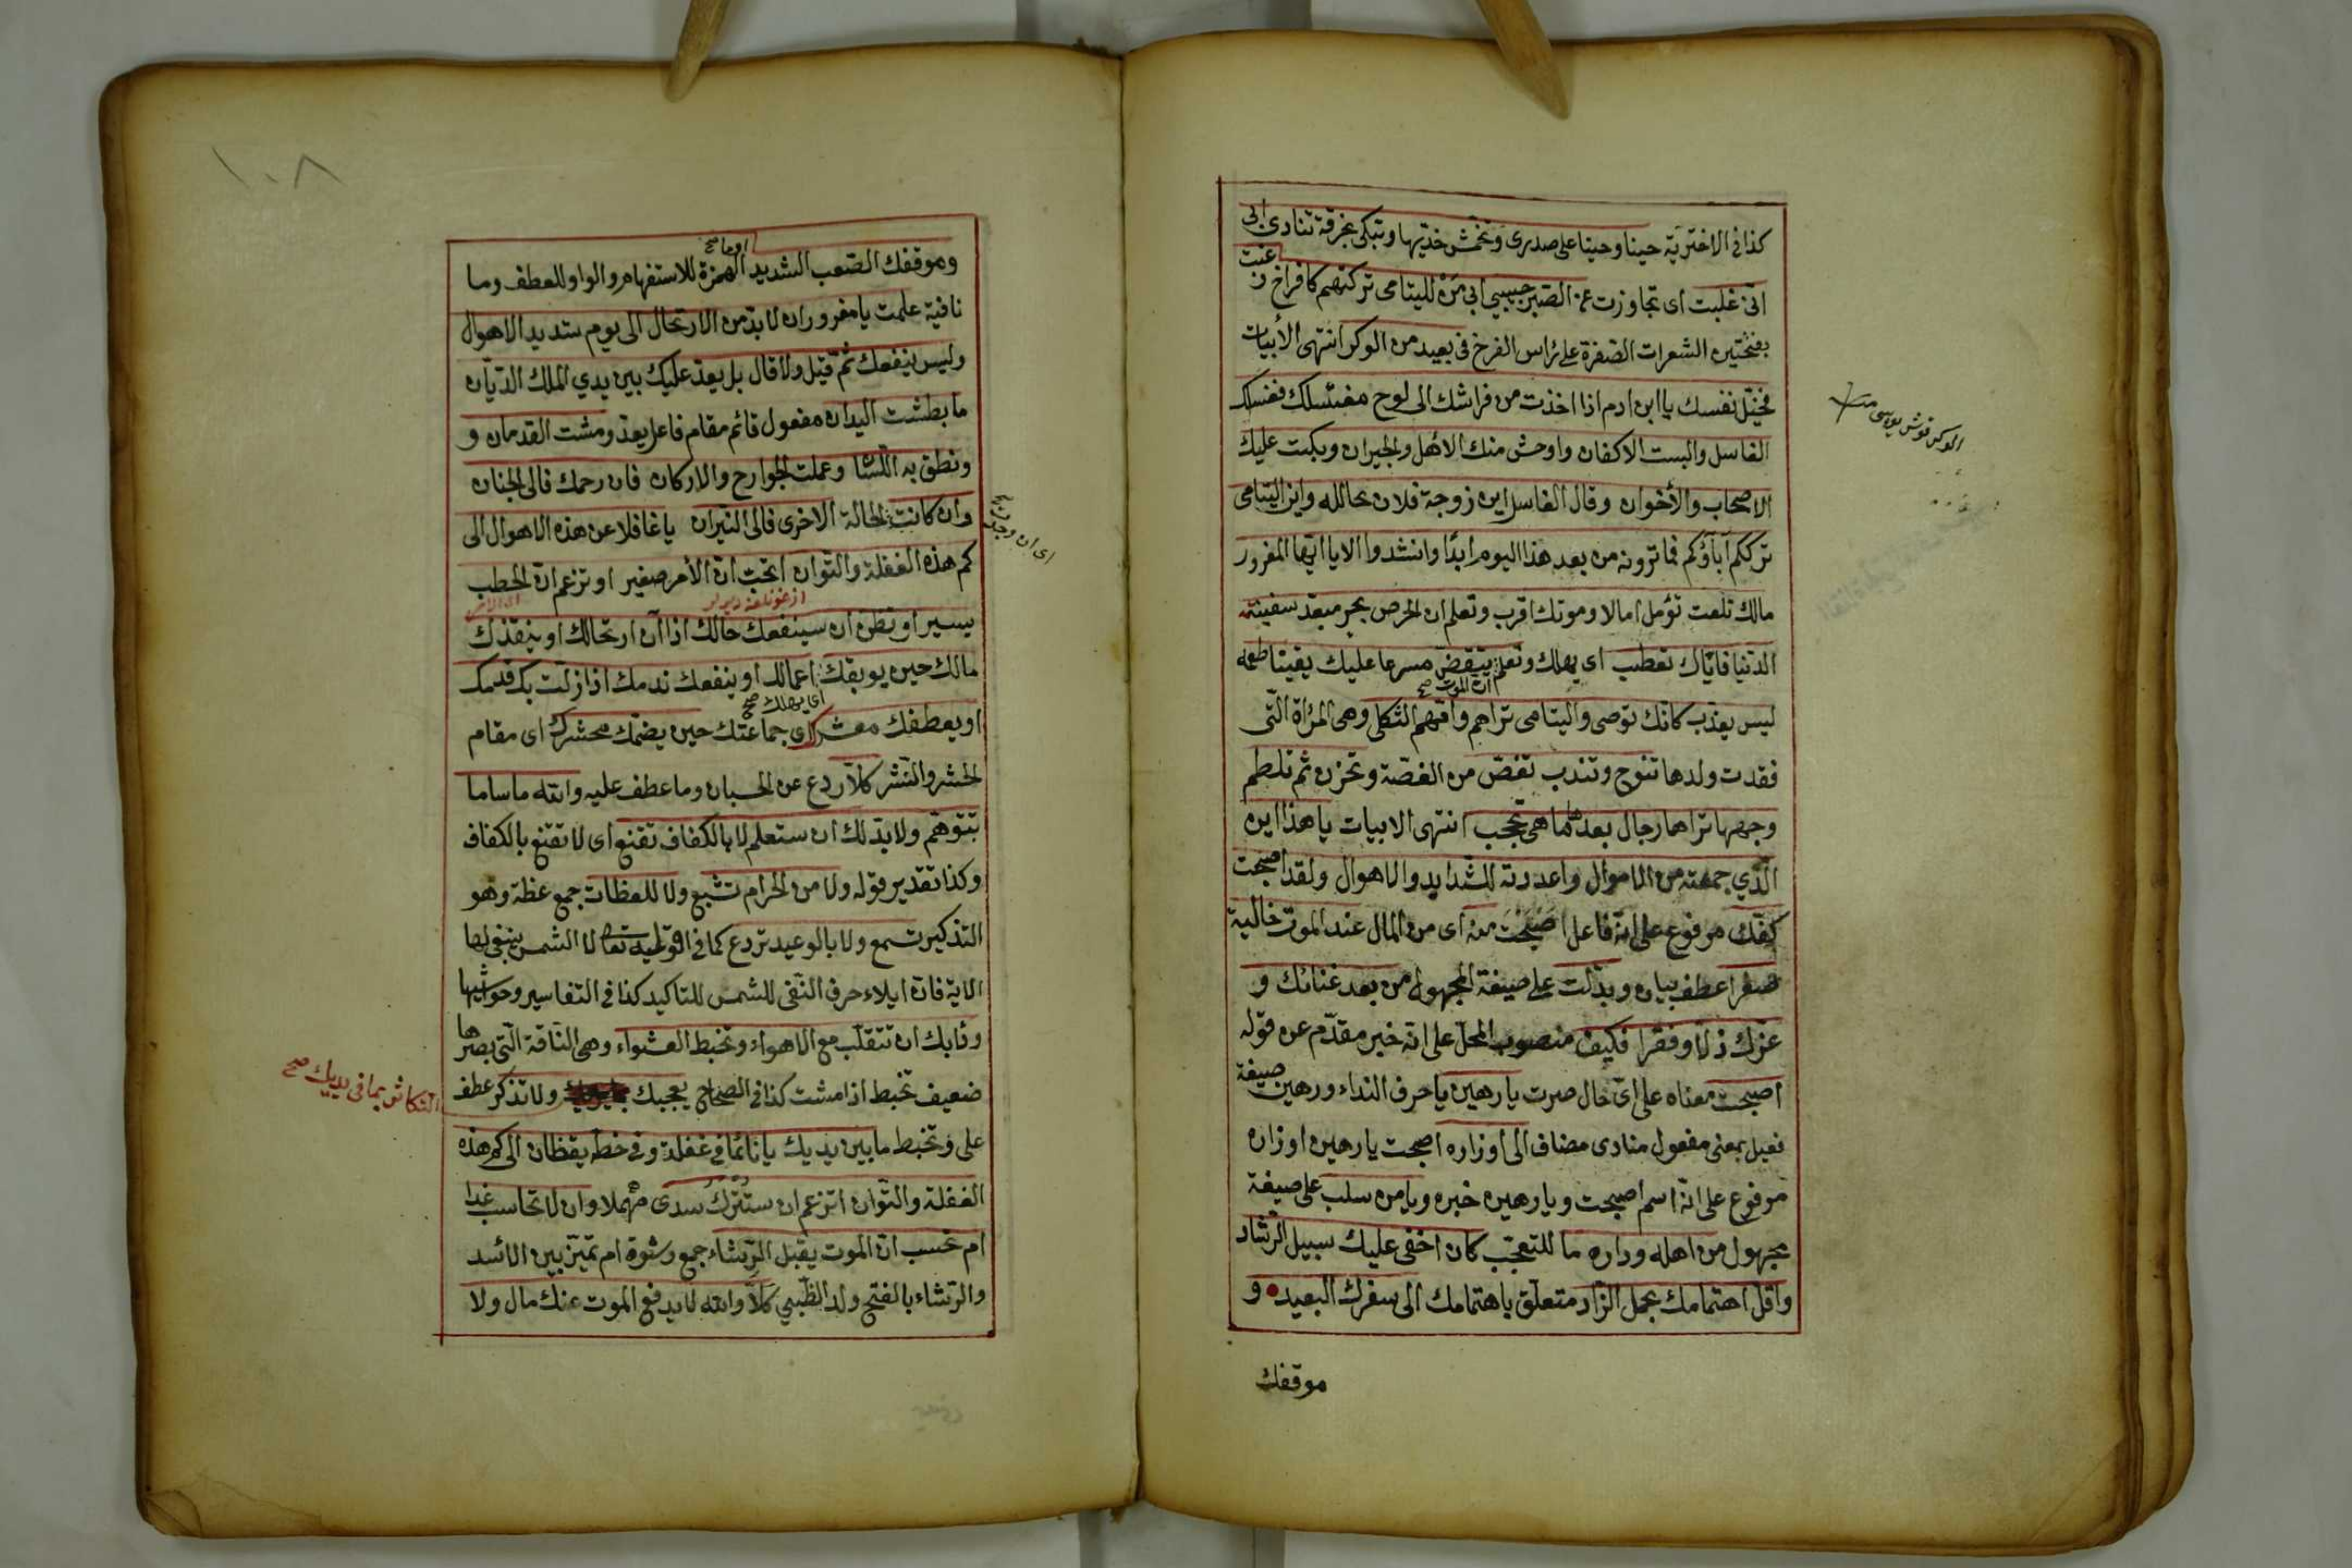 كذا في الاخترية حينا وحينا على صدرى وتخمش خديها وتبكى بحرقة تنادى ابى
انى غلبت اى تجاوزت عن الصبر حبيبي ابى من لليتامى تركتهم كافراخ زغب
بفتحتين الشعرات الصفرة على راس الفرخ فى بعيد من الوكر انتهى الأبيات
فخيّل نفسك يا ابن ادم اذا اخذت من فراشك الى لوح مغتسلك فغسلك
الغاسل والبست الاكفان واوحش منك الأهل والجيران وبكت عليك
الاصحاب والأخوان وقال الغاسل اين زوجة فلان تحالله واين اليتامى
ترككم اباؤكم فما ترونه من بعد هذا اليوم ابدًا وانشدوا الا يا ايها المغرور
مالك تلعب تؤمل امالا وموتك اقرب وتعلم ان الحرص بحر مبعد سفينته
الدنيا فاياك تعطب اى يهلك وتعلم ان الموت صح ينقض مسرعا عليك يقينا طعمه
ليس يعذب كانك توصى واليتامى تراهم وامهم الثكلى وهى المراة التى
فقدت ولدها تنوح وتندب تغص من الغصة وتحزن ثم تلطم
وجهها تراها رجال بعد ما هى تحجب انتهى الابيات يا هذا اين
الذي جمعته من الاموال واعددته للشدايد والاهوال ولقد اصبحت
كفك مرفوع على انه فاعل اصبحت منه اى من المال عند الموت خالية
صفرا عطف بيان وبدلت على صيغة المجهول من بعد غنائك و
عزك ذلا وفقرا فكيف منصوب المحل على انه خبر مقدم عن قوله
اصبحت معناه على اى حال صرت يا رهين يا حرف النداء ورهين صيغة
فعيل بمعنى مفعول منادى مضاف الى اوزاره اصبحت يا رهين اوزان
مرفوع على انه اسم اصبحت ويا رهين خبره ويا من سلب على صيغة
مجهول من اهله وداره ما للتعجب كان اخفى عليك سبيل الرشاد
واقل اهتمامك بحمل الزاد متعلق باهتمامك الى سفرك البعيد و
موقفك
الوكر قوش يوسى
١٠٨
وموقفك الصعب الشديد اوما صح الهمزة للاستفهام والواو للعطف وما
نافية علمت يا مغرور ان لا بد من الارتحال الى يوم شديد الاهوال
وليس ينفعك ثم قيل ولا قال بل يعد عليك بين يدي الملك الديان
ما بطشت اليدان مفعول قائم مقام فاعل يعد ومشت القدمان و
ونطق به اللسان وعملت الجوارح والاركان فان رحمك فالى الجنان
وان كانت الحالة الاخرى فالى النيران يا غافلا عن هذه الاهوال الى
كم هذه الغفلة والتوان اتحسب ان الأمر صغير او تزعم ان الخطب
يسير او تظن ان سينفعك حالك اذا آن ارتحالك او ينقذك
مالك حين يوبقك اى يهلك صح اعمالك او ينفعك ندمك اذا زلت بك قدمك
او يعطفك معشرك اى جماعتك حين يضمك محشرك اى مقام
الحشر والنشر كلا ردع عن الحسبان وما عطف عليه والله ما سا ما
تتوهم ولا بد لك ان ستعلم لا بالكفاف تقنع اى لا تقنع بالكفاف
وكذا تقدير قوله ولا من الحرام تشبع ولا للعظات جمع عظة وهو
التذكير تسمع ولا بالوعيد تردع كما فى قوله تعالى لا الشمس ينبغى لها
الاية فان ايلاء حرف النفى للشمس للتاكيد كذا فى التفاسير وحواشيها
ودابك ان تتقلب مع الاهواء وتخبط العشواء وهى الناقة التى بصرها
ضعيف تخبط اذا مشت كذا فى الصحاح يعجبك ولا تذكر عطف
على وتخبط ما بين يديك يا نائما فى غفلة وفى خطه يقظان الى كم هذه
الغفلة والتوان اتزعم ان ستترك سدى مهملا وان لا تحاسب غدا
ام تحسب ان الموت يقبل الرشاء جمع رشوة ام تميز بين الأسد
والرشاء بالفتح ولد الظبي كلا والله لا يدفع الموت عنك مال ولا
التكاثر بما فى يديك صح